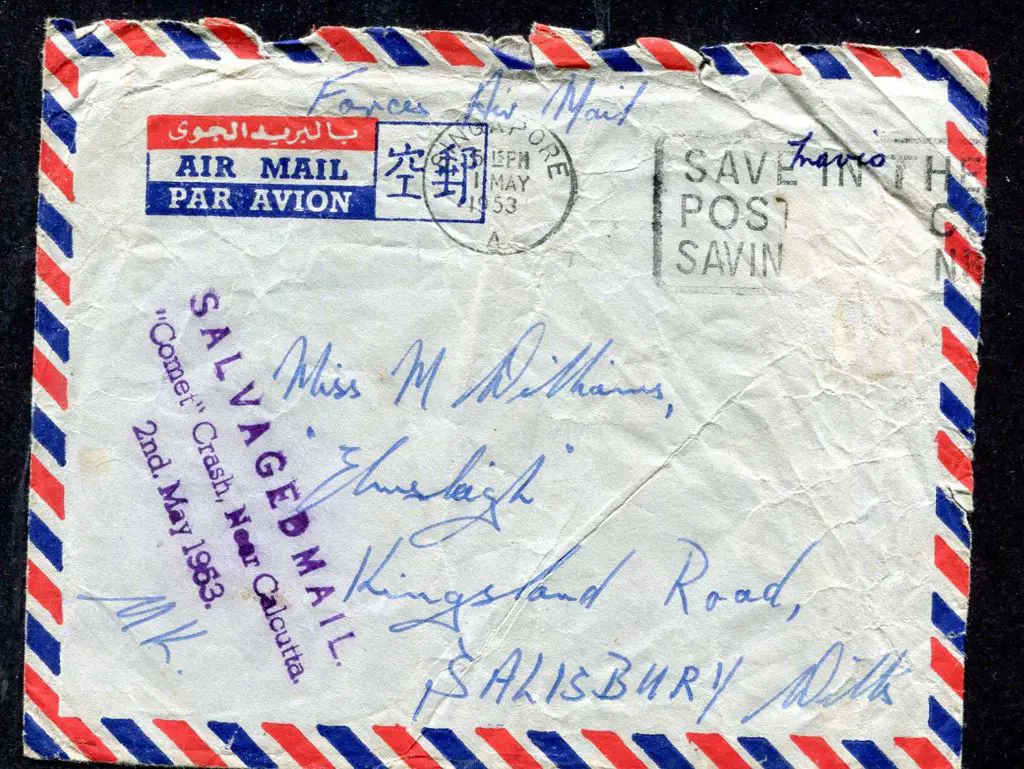 Forces Air Mail
بالبريد الجوى
AIR MAIL
PAR AVION
空郵
SINGAPORE
15PM
1 MAY
1953
A
Travis
SAVE IN THE
POST
SAVIN
SALVAGED MAIL.
"Comet" Crash, Near Calcutta.
2nd. May 1953.
Miss M Williams,
"Elmsleigh"
Kingsland Road,
SALISBURY Wilts
M K.